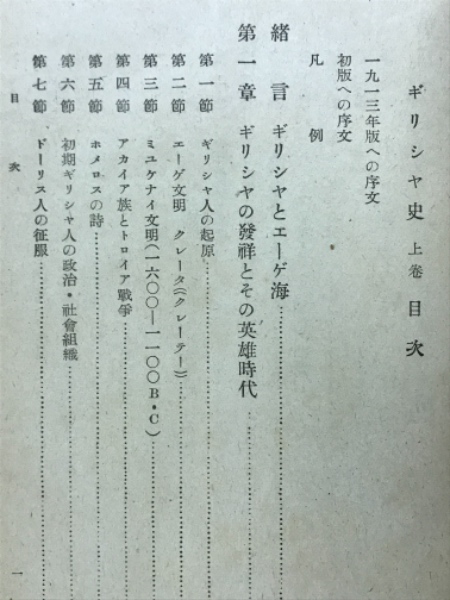 ギリシヤ史 上卷 目次
一九一三年版への序文
初版への序文
凡例
緒言 ギリシヤとエーゲ海
第一章 ギリシヤの發祥とその英雄時代
第一節 ギリシヤ人の起原
第二節 エーゲ文明 クレータ(クレーテー)
第三節 ミユケナイ文明(一六〇〇—一一〇〇B・C)
第四節 アカイア族とトロイア戰爭
第五節 ホメロスの詩
第六節 初期ギリシヤ人の政治・社會組織
第七節 ドーリス人の征服
目次
一